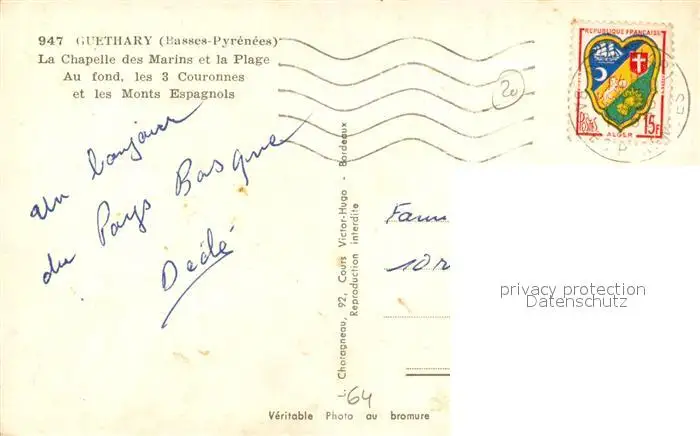 947 GUETHARY (Basses-Pyrénées)
La Chapelle des Marins et la Plage
Au fond, les 3 Couronnes
et les Monts Espagnols
20
REPUBLIQUE FRANÇAISE
POSTES
15F
ALGER
un bonjour
du Pays Basque
Dédé
L. Chatagneau, 92, Cours Victor-Hugo - Bordeaux
Reproduction interdite
Fam
10 r
privacy protection
Datenschutz
64
Véritable Photo au bromure